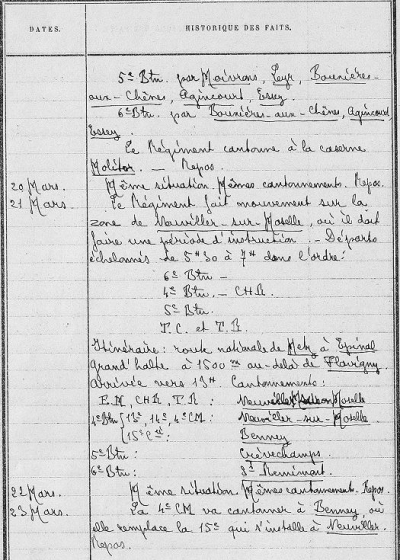 DATES.
HISTORIQUE DES FAITS.
5e Btn. par Moivrons, Leyr, Bouxières-
aux-Chênes, Agincourt, Essey.
6e Btn. par Bouxières-aux-Chênes, Agincourt
Essey.
Le Régiment cantonne à la caserne
Molitor. — Repos.
20 Mars. Même situation. Mêmes cantonnements. Repos.
21 Mars. Le Régiment fait mouvement sur la
zone de Neuviller-sur-Moselle, où il doit
faire une période d'instruction. - Départs
échelonnés de 5h30 à 7h dans l'ordre:
6e Btn —
4e Btn. — CHR.
5e Btn.
T.C. et T.R.
Itinéraire: route nationale de Metz à Epinal
grand'halte à 1500m au-delà de Flavigny
arrivée vers 13h Cantonnements:
E.M, CHR, T.R: Neuviller-sur-Moselle
4e Btn { 13e, 14e, 4e CM: Neuviller-sur-Moselle.
15e Cie: Benney
5e Btn: Crévechamps.
6e Btn: St Remimont.
22 Mars. Même situation. Mêmes cantonnements. Repos.
23 Mars. La 4e CM va cantonner à Benney, où
elle remplace la 15e qui s'installe à Neuviller.
Repos.